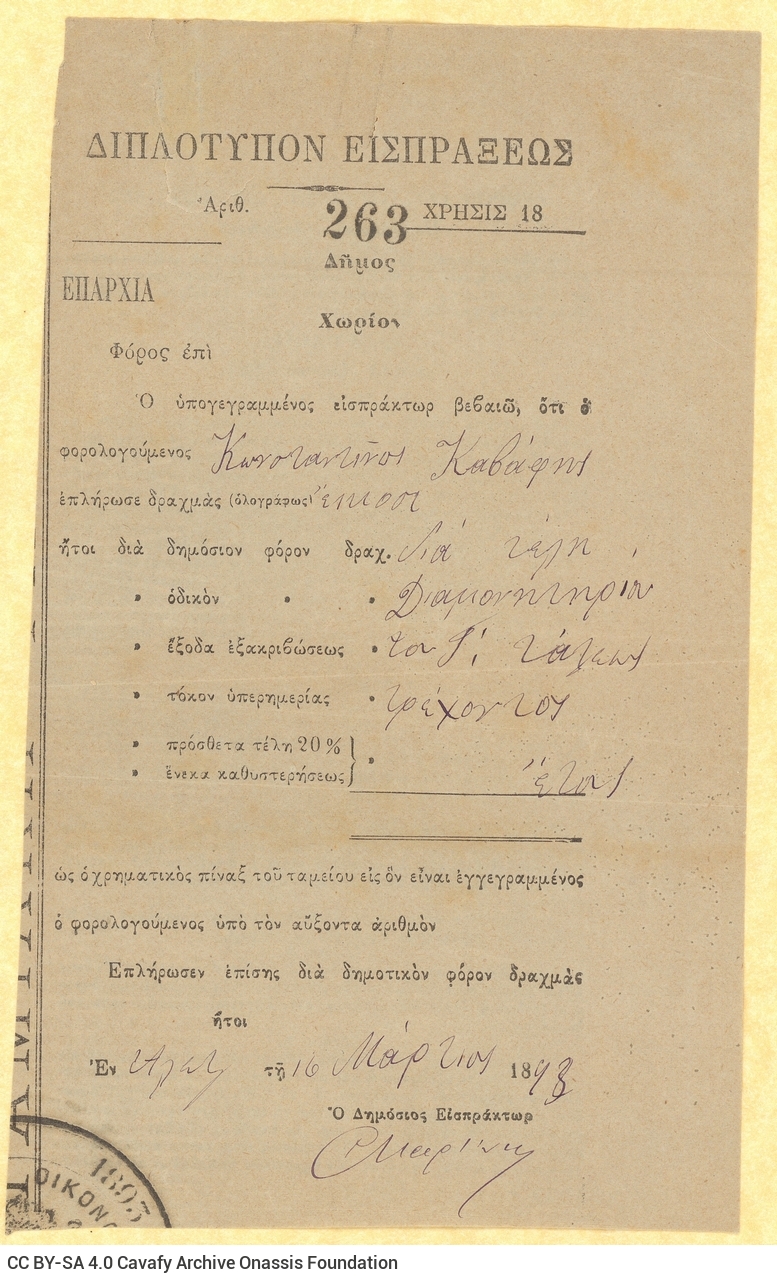 ΔΙΠΛΟΤΥΠΟΝ ΕΙΣΠΡΑΞΕΩΣ
Ἀριθ. 263 ΧΡΗΣΙΣ 18
Δῆμος
ΕΠΑΡΧΙΑ
Χωρίον
Φόρος ἐπὶ
Ὁ ὑπογεγραμμένος εἰσπράκτωρ βεβαιῶ, ὅτι ὁ
φορολογούμενος Κωνσταντῖνος Καβάφης
ἐπλήρωσε δραχμὰς (ὁλογράφως) εἴκοσι
ἤτοι διὰ δημόσιον φόρον δραχ. διά τέλη
» ὁδικὸν » » Διαμονητηρίου
» ἔξοδα ἐξακριβώσεως » του Γ' τάξεως
» τόκον ὑπερημερίας » τρέχοντος
» πρόσθετα τέλη 20 % »
» ἕνεκα καθυστερήσεως ἔτους
ὡς ὁ χρηματικὸς πίναξ τοῦ ταμείου εἰς ὃν εἶναι ἐγγεγραμμένος
ὁ φορολογούμενος ὑπὸ τὸν αὔξοντα ἀριθμὸν
Ἐπλήρωσεν ἐπίσης διὰ δημοτικὸν φόρον δραχμὰς
ἤτοι
Ἐν Αλεξ τῇ 16 Μάρτιος 1893
Ὁ Δημόσιος Εἰσπράκτωρ
1893
ΟΙΚΟΝΟ
CC BY-SA 4.0 Cavafy Archive Onassis Foundation